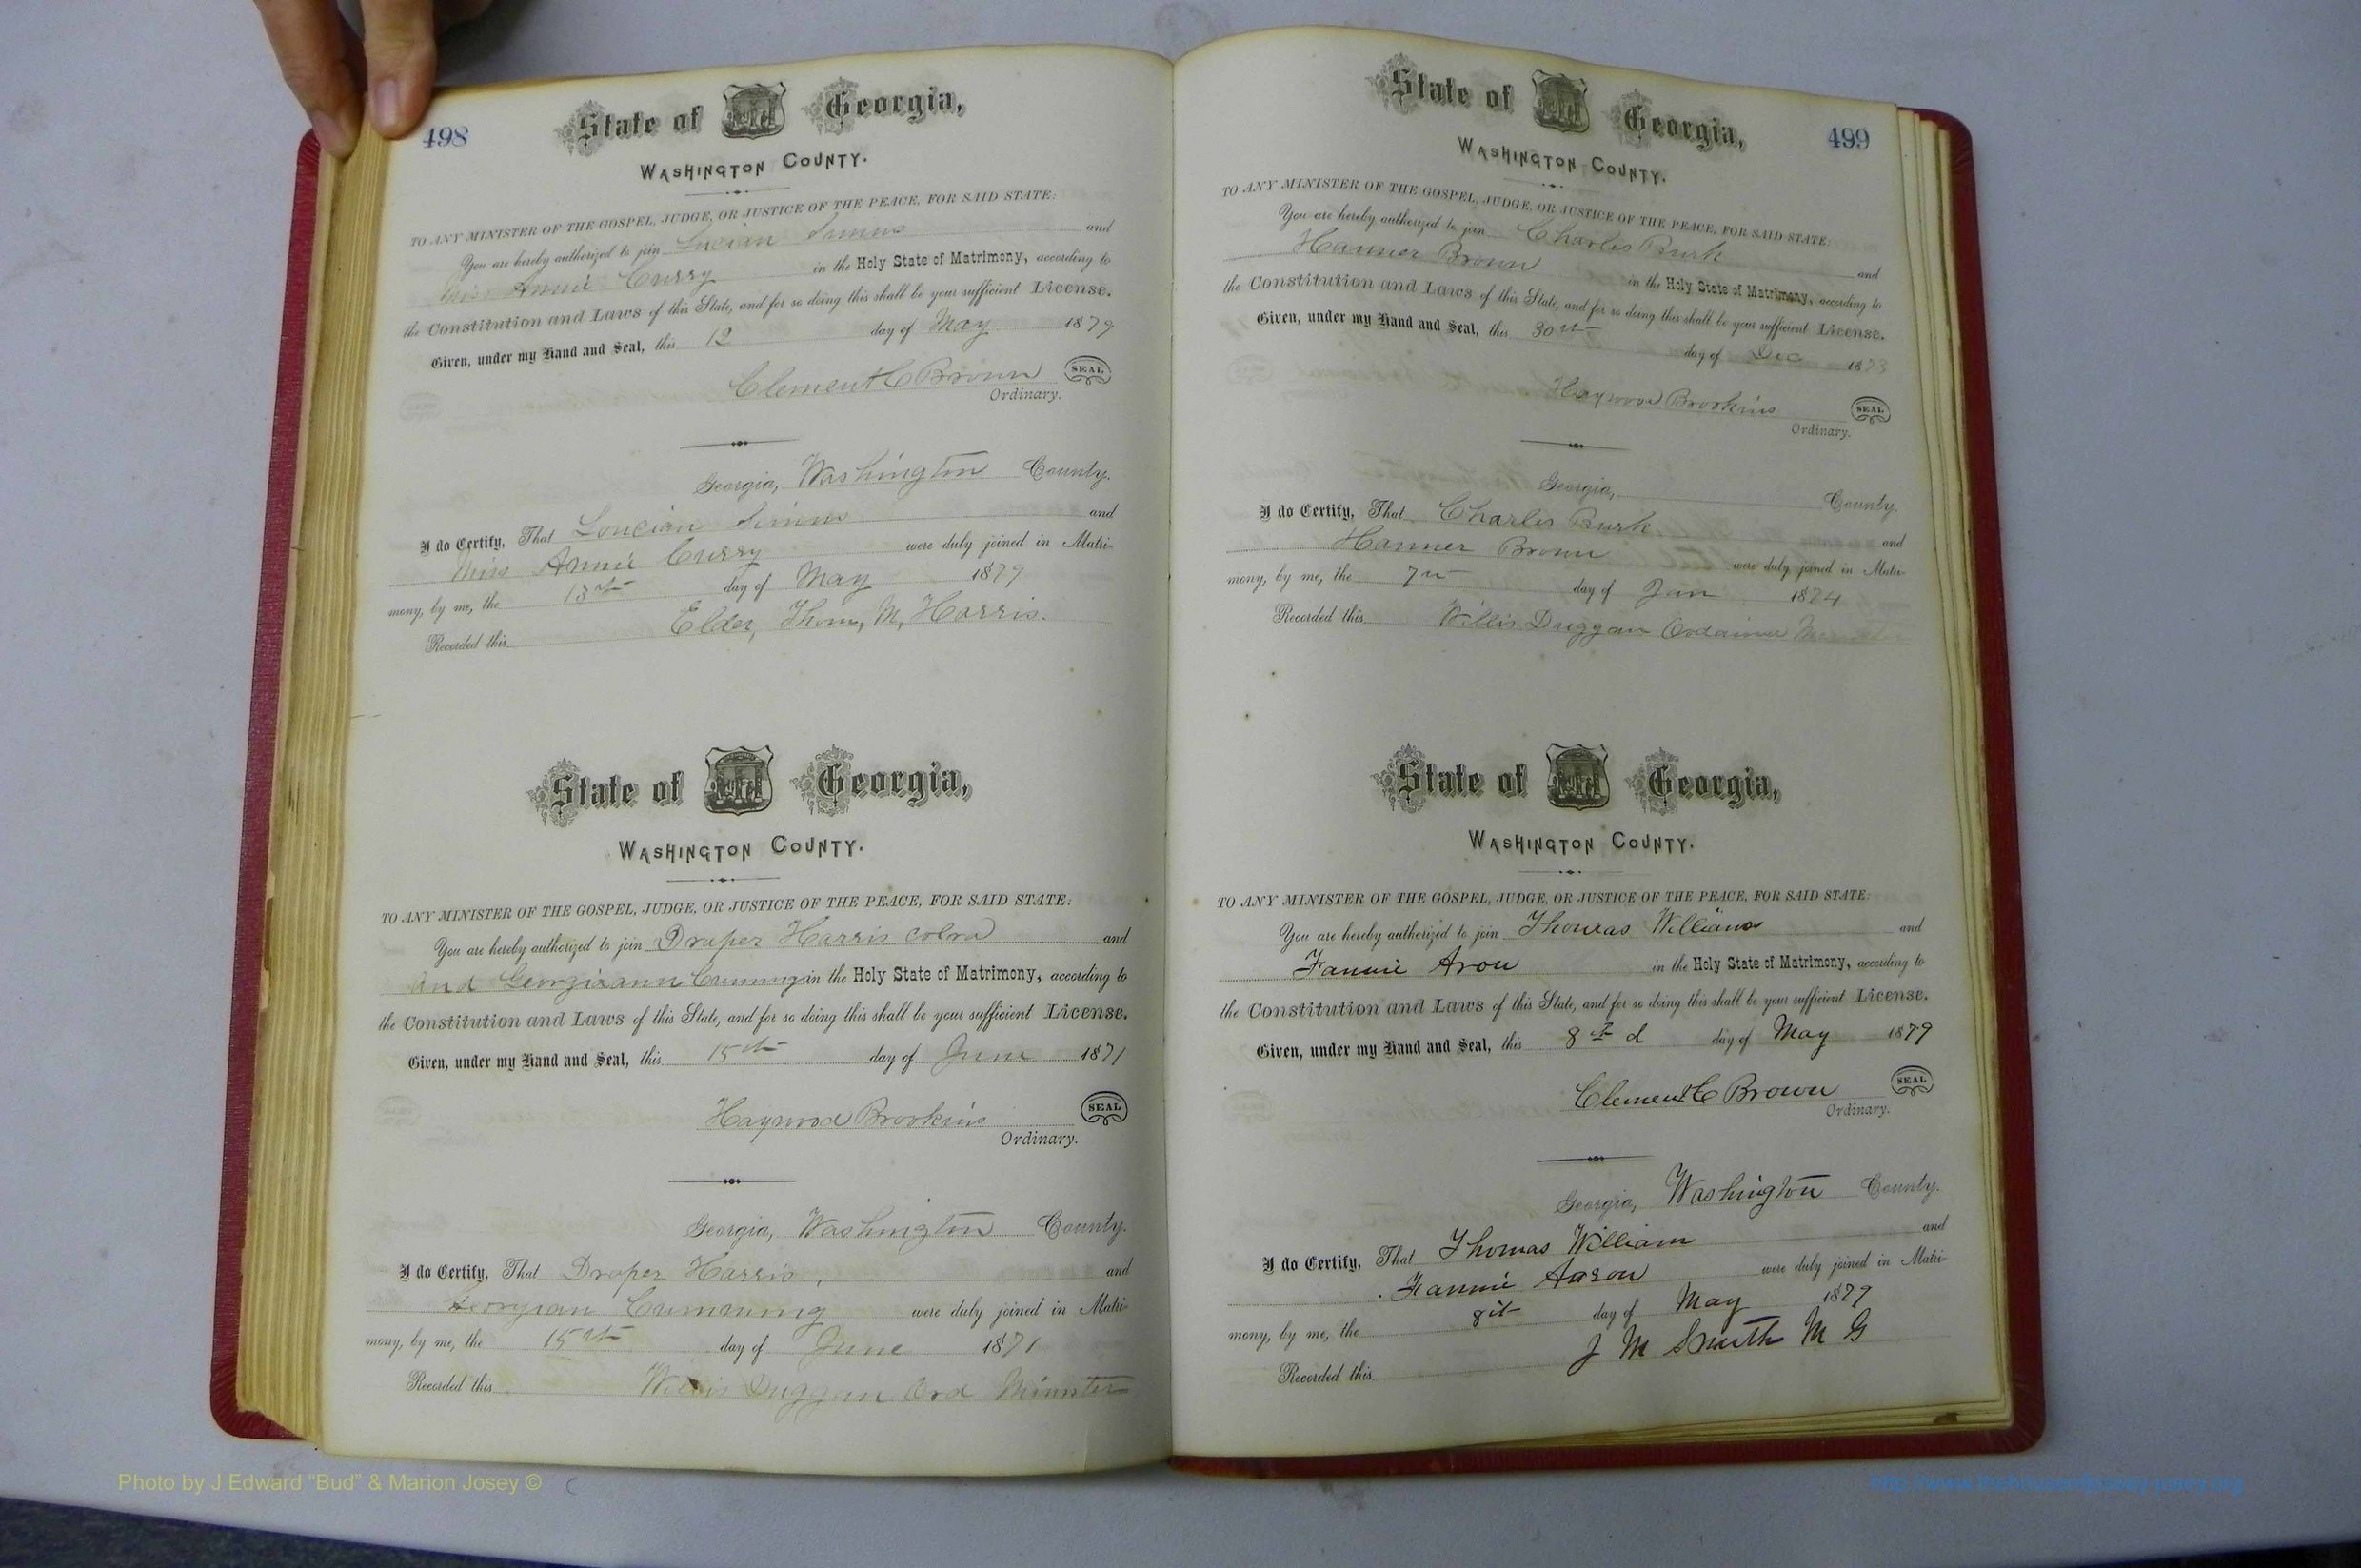 498
State of Georgia,
WASHINGTON COUNTY.
TO ANY MINISTER OF THE GOSPEL, JUDGE, OR JUSTICE OF THE PEACE, FOR SAID STATE:
You are hereby authorized to join Lucian Simms and
Miss Annie Curry in the Holy State of Matrimony, according to
the Constitution and Laws of this State, and for so doing this shall be your sufficient License.
Given, under my Hand and Seal, this 12 day of May 1879
Clement C Brown SEAL
Ordinary.
Georgia, Washington County.
I do Certify, That Loucian Simms and
Miss Annie Curry were duly joined in Matri-
mony, by me, the 13th day of May 1879
Recorded this Elder, Thom, M, Harris.
State of Georgia,
WASHINGTON COUNTY.
TO ANY MINISTER OF THE GOSPEL, JUDGE, OR JUSTICE OF THE PEACE, FOR SAID STATE:
You are hereby authorized to join Draper Harris colrd and
And Georgiaann Cumming in the Holy State of Matrimony, according to
the Constitution and Laws of this State, and for so doing this shall be your sufficient License.
Given, under my Hand and Seal, this 15th day of June 1871
Haywood Brookins SEAL
Ordinary.
Georgia, Washington County.
I do Certify, That Draper Harris, and
Georgian Cumming were duly joined in Matri-
mony, by me, the 15th day of June 1871
Recorded this Willis Duggan Ord Minister
499
State of Georgia,
WASHINGTON COUNTY.
TO ANY MINISTER OF THE GOSPEL, JUDGE, OR JUSTICE OF THE PEACE, FOR SAID STATE:
You are hereby authorized to join Charles Burk and
Hanner Brown in the Holy State of Matrimony, according to
the Constitution and Laws of this State, and for so doing this shall be your sufficient License.
Given, under my Hand and Seal, this 30th day of Dec 1873
Haywood Brookins SEAL
Ordinary.
Georgia, County.
I do Certify, That Charles Burk and
Hanner Brown were duly joined in Matri-
mony, by me, the 7th day of Jan 1874
Recorded this Willis Duggan Ordained Minister
State of Georgia,
WASHINGTON COUNTY.
TO ANY MINISTER OF THE GOSPEL, JUDGE, OR JUSTICE OF THE PEACE, FOR SAID STATE:
You are hereby authorized to join Thomas Williams and
Fannie Aron in the Holy State of Matrimony, according to
the Constitution and Laws of this State, and for so doing this shall be your sufficient License.
Given, under my Hand and Seal, this 8th d day of May 1879
Clement C Brown SEAL
Ordinary.
Georgia, Washington County.
I do Certify, That Thomas William and
Fannie Aaron were duly joined in Matri-
mony, by me, the 8th day of May 1879
Recorded this J M Smith M G
Photo by J Edward "Bud" & Marion Josey ©